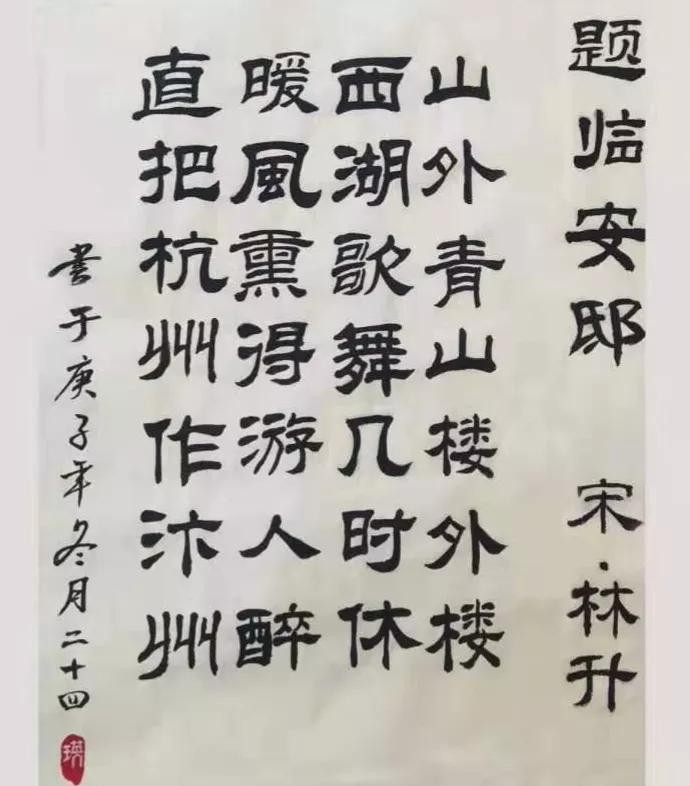 题临安邸 宋·林升
山外青山楼外楼
西湖歌舞几时休
暖風熏得游人醉
直把杭州作汴州
书于庚子年冬月二十四
瑛